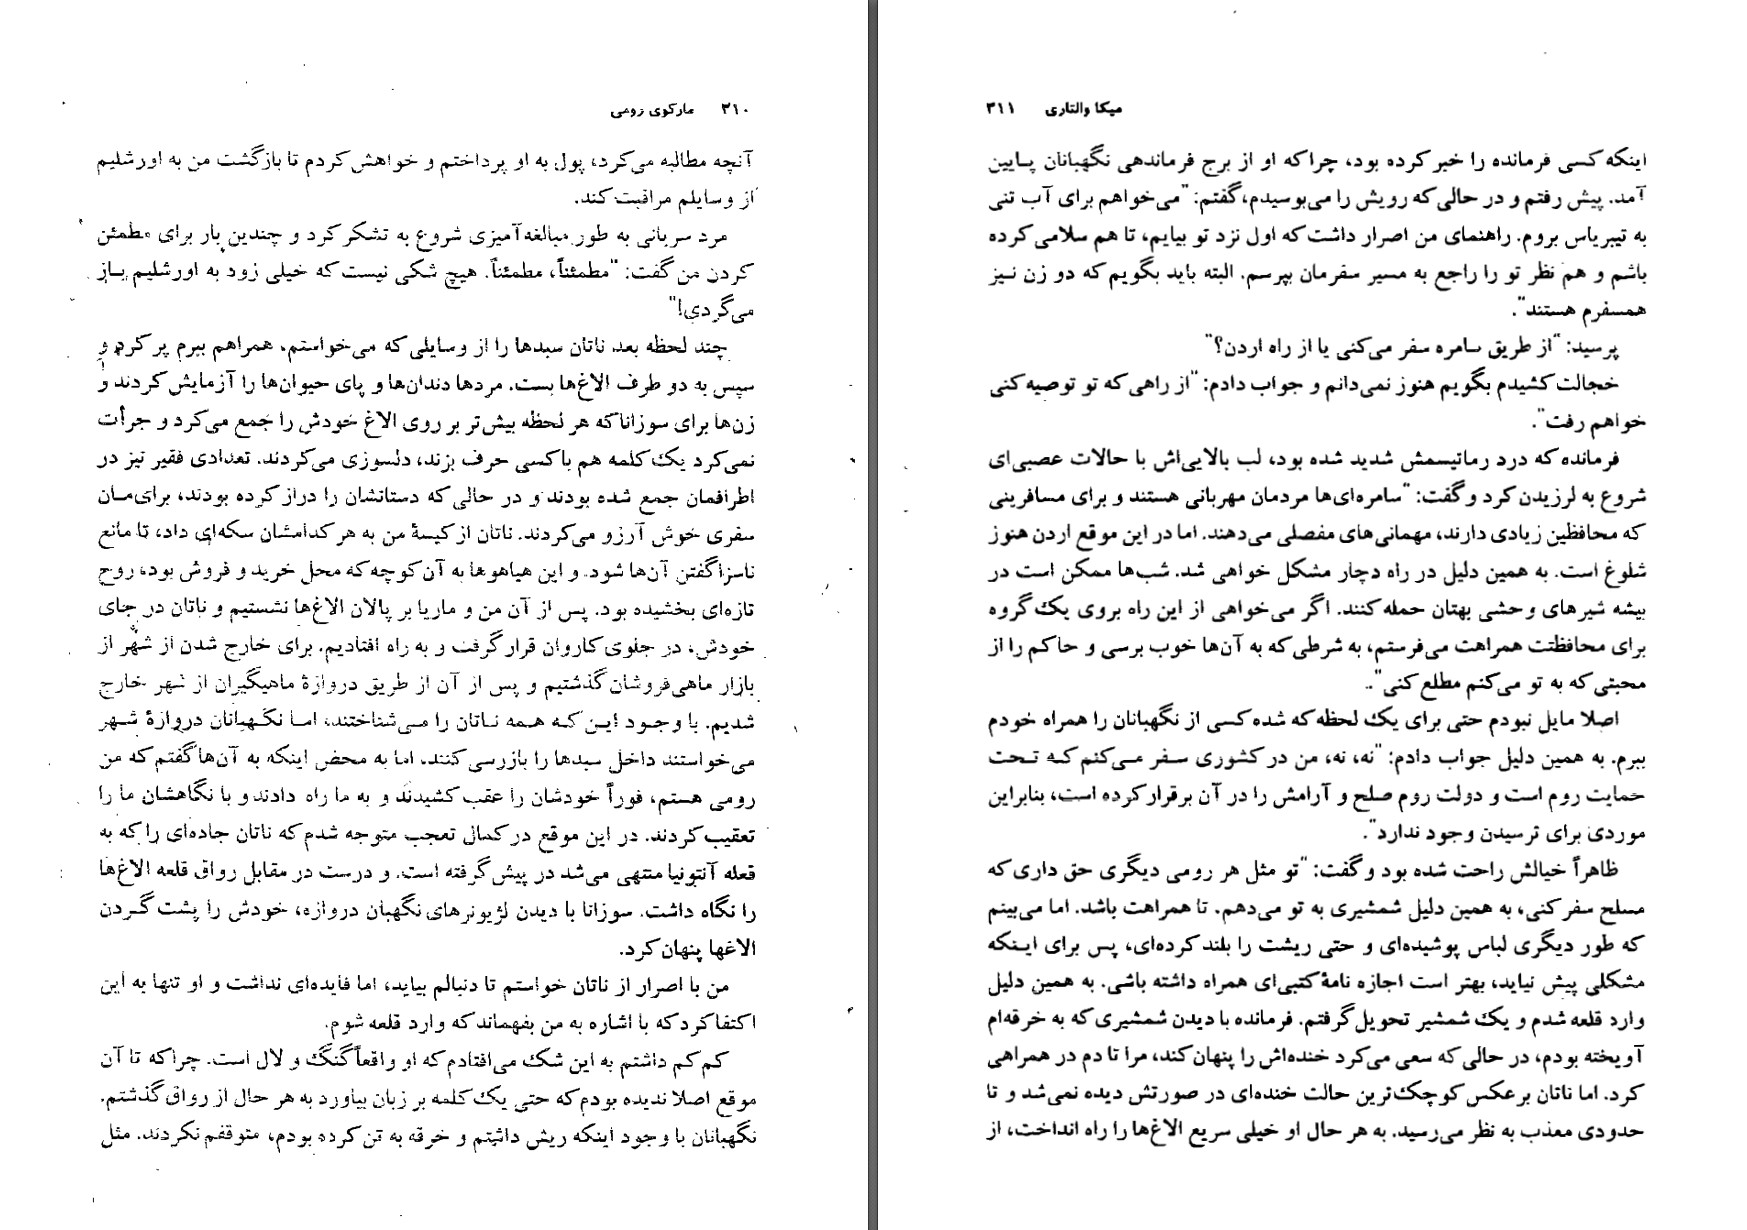 ۳۱۰ مارکوی رومی
آنچه مطالبه می‌کرد، پول به او پرداختم و خواهش کردم تا بازگشت من به اورشلیم
از وسایلم مراقبت کند.
مرد سریانی به طور مبالغه‌آمیزی شروع به تشکر کرد و چندین بار برای مطمئن
کردن من گفت: "مطمئناً، مطمئناً. هیچ شکی نیست که خیلی زود به اورشلیم بـاز
می‌گردی!"
چند لحظه بعد، ناتان سبدها را از وسایلی که می‌خواستم، همراهم ببرم پر کرد و
سپس به دو طرف الاغ‌ها بست. مردها دندان‌ها و پای حیوان‌ها را آزمایش کردند و
زن‌ها برای سوزانا که هر لحظه بیش‌تر بر روی الاغ خودش را جمع می‌کرد و جرأت
نمی‌کرد یک کلمه هم با کسی حرف بزند، دلسوزی می‌کردند. تعدادی فقیر نیز در
اطرافمان جمع شده بودند و در حالی که دستانشان را دراز کرده بودند، برای‌مـان
سفری خوش آرزو می‌کردند. ناتان از کیسهٔ من به هر کدامشان سکه‌ای داد، تا مانع
ناسزا گفتن آن‌ها شود. و این هیاهوها به آن کوچه که محل خرید و فروش بود، روح
تازه‌ای بخشیده بود. پس از آن من و ماریا بر پالان الاغ‌ها نشستیم و ناتان در جای
خودش، در جلوی کاروان قرار گرفت و به راه افتادیم. برای خارج شدن از شهر از
بازار ماهی‌فروشان گذشتیم و پس از آن از طریق دروازهٔ ماهیگیران از شهر خارج
شدیم. با وجود ایـن کـه همه نـاتان را مـی‌شناختند، امـا نگـهبانان دروازهٔ شـهر
می‌خواستند داخل سبدها را بازرسی کنند، اما به محض اینکه به آن‌ها گفتم که من
رومی هستم، فوراً خودشان را عقب کشیدند و به ما راه دادند و با نگاهشان ما را
تعقیب کردند. در این موقع در کمال تعجب متوجه شدم که ناتان جاده‌ای را که به
قعله آنتونیا منتهی می‌شد در پیش گرفته است. و درست در مقابل رواق قلعه الاغ‌ها
را نگاه داشت. سوزانا با دیدن لژیونرهای نگهبان دروازه، خودش را پشت گـردن
الاغها پنهان کرد.
من با اصرار از ناتان خواستم تا دنبالم بیاید، اما فایده‌ای نداشت و او تنها به این
اکتفا کرد که با اشاره به من بفهماند که وارد قلعه شوم.
کم کم داشتم به این شک می‌افتادم که او واقعاً گنگ و لال است. چرا که تا آن
موقع اصلا ندیده بودم که حتی یک کلمه بر زبان بیاورد به هر حال از رواق گذشتم.
نگهبانان با وجود اینکه ریش داشتم و خرقه به تن کرده بودم، متوقفم نکردند. مثل
میکا والتاری ۳۱۱
اینکه کسی فرمانده را خبر کرده بود، چرا که او از برج فرماندهی نگهبانان پـایین
آمد. پیش رفتم و در حالی که رویش را می‌بوسیدم، گفتم: "می‌خواهم برای آب تنی
به تیبریاس بروم. راهنمای من اصرار داشت که اول نزد تو بیایم، تا هم سلامی کرده
باشم و هم نظر تو را راجع به مسیر سفرمان بپرسم. البته باید بگویم که دو زن نـیز
همسفرم هستند".
پرسید: "از طریق سامره سفر می‌کنی یا از راه اردن؟"
خجالت کشیدم بگویم هنوز نمی‌دانم و جواب دادم: "از راهی که تو توصیه کنی
خواهم رفت".
فرمانده که درد رماتیسمش شدید شده بود، لب بالایی‌اش با حالات عصبی‌ای
شروع به لرزیدن کرد و گفت: "سامره‌ای‌ها مردمان مهربانی هستند و برای مسافرینی
که محافظین زیادی دارند، مهمانی‌های مفصلی می‌دهند. اما در این موقع اردن هنوز
شلوغ است. به همین دلیل در راه دچار مشکل خواهی شد. شب‌ها ممکن است در
بیشه شیرهای وحشی بهتان حمله کنند. اگر می‌خواهی از این راه بروی یک گروه
برای محافظتت همراهت می‌فرستم، به شرطی که به آن‌ها خوب برسی و حاکم را از
محبتی که به تو می‌کنم مطلع کنی".
اصلا مایل نبودم حتی برای یک لحظه که شده کسی از نگهبانان را همراه خودم
ببرم. به همین دلیل جواب دادم: "نه، نه، من در کشوری سـفر مـی‌کنم کـه تـحت
حمایت روم است و دولت روم صلح و آرامش را در آن برقرار کرده است، بنابراین
موردی برای ترسیدن وجود ندارد".
ظاهراً خیالش راحت شده بود و گفت: "تو مثل هر رومی دیگری حق داری که
مسلح سفر کنی، به همین دلیل شمشیری به تو می‌دهم. تا همراهت باشد. اما می‌بینم
که طور دیگری لباس پوشیده‌ای و حتی ریشت را بلند کرده‌ای، پس برای ایـنکه
مشکلی پیش نیاید، بهتر است اجازه نامهٔ کتبی‌ای همراه داشته باشی. به همین دلیل
وارد قلعه شدم و یک شمشیر تحویل گرفتم. فرمانده با دیدن شمشیری که به خرقه‌ام
آویخته بودم، در حالی که سعی می‌کرد خنده‌اش را پنهان کند، مرا تا دم در همراهی
کرد. اما ناتان برعکس کوچک‌ترین حالت خنده‌ای در صورتش دیده نمی‌شد و تا
حدودی معذب به نظر می‌رسید. به هر حال او خیلی سریع الاغ‌ها را راه انداخت، از